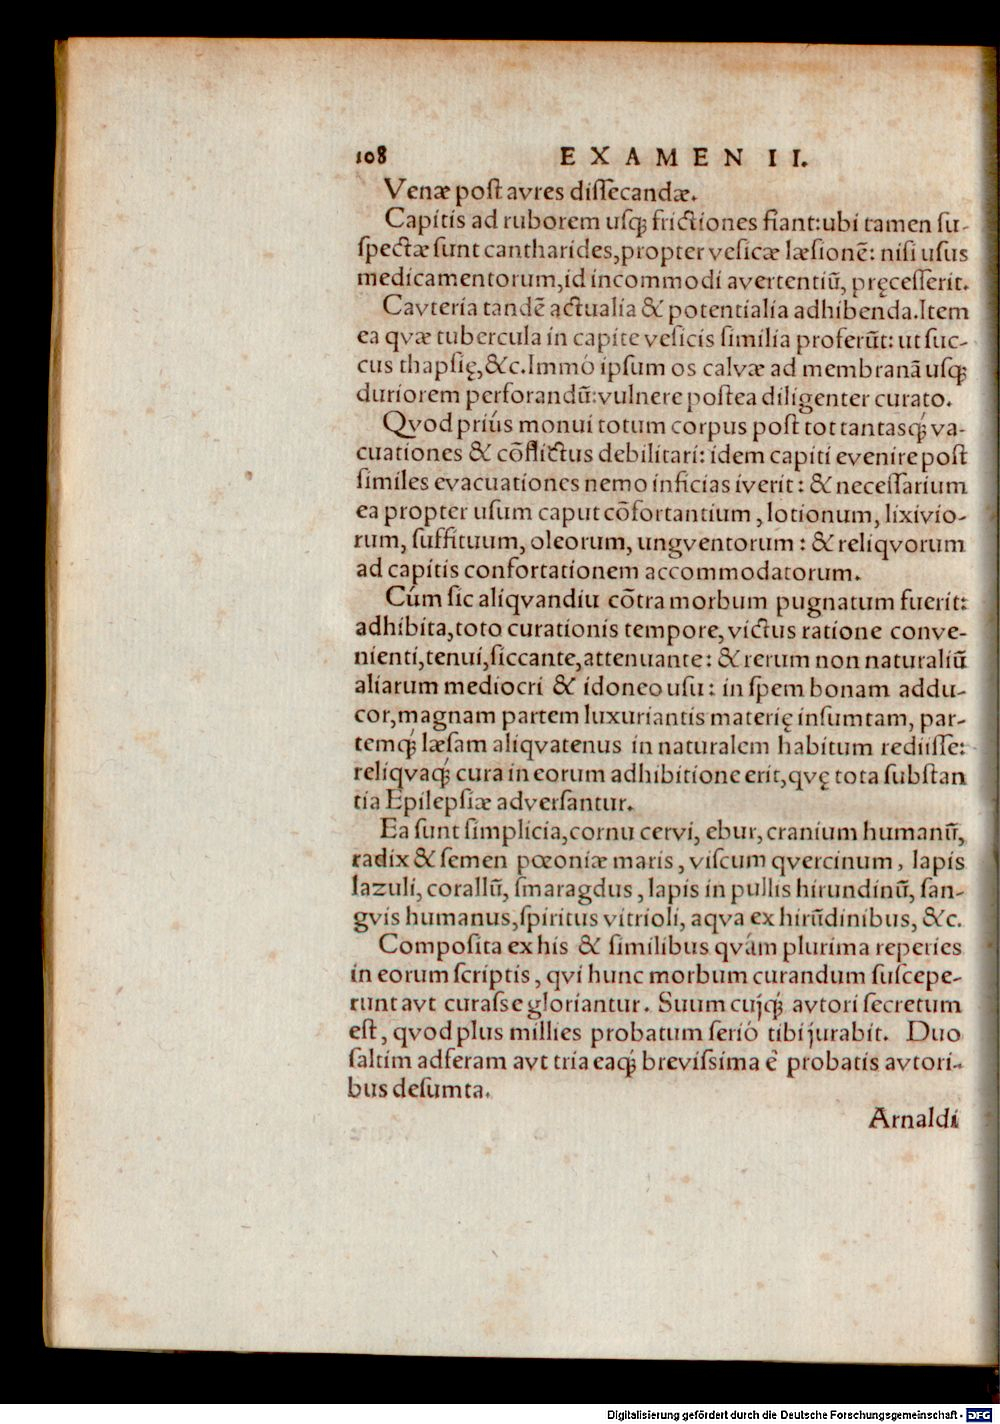 108 EXAMEN II.
Venæ poſt avres diſſecandæ.
Capitis ad ruborem uſq; frictiones fiant: ubi tamen ſu-
ſpectæ ſunt cantharides, propter veſicæ læſionẽ: niſi uſus
medicamentorum, id incommodi avertentiũ, pręceſſerit.
Cavteria tandẽ actualia & potentialia adhibenda. Item
ea qvæ tubercula in capite veſicis ſimilia proferũt: ut ſuc-
cus thapſię, &c. Immò ipſum os calvæ ad membranã uſq;
duriorem perforandũ: vulnere poſtea diligenter curato.
Qvod priús monui totum corpus poſt tot tantasq́; va-
cuationes & cõflictus debilitari: idem capiti evenire poſt
ſimiles evacuationes nemo inficias iverit: & neceſſarium
ea propter uſum caput cõfortantium, lotionum, lixivio-
rum, ſuffituum, oleorum, ungventorum: & reliqvorum
ad capitis confortationem accommodatorum.
Cúm ſic aliqvandiu cõtra morbum pugnatum fuerit:
adhibita, toto curationis tempore, victus ratione conve-
nienti, tenui, ſiccante, attenuante: & rerum non naturaliũ
aliarum mediocri & idoneo uſu: in ſpem bonam addu-
cor, magnam partem luxuriantis materię inſumtam, par-
temq́; læſam aliqvatenus in naturalem habitum rediiſſe:
reliqvaq́; cura in eorum adhibitione erit, qvę tota ſubſtan
tia Epilepſiæ adverſantur.
Ea ſunt ſimplicia, cornu cervi, ebur, cranium humanũ,
radix & ſemen pœoniæ maris, viſcum qvercinum, lapis
lazuli, corallũ, ſmaragdus, lapis in pullis hirundinũ, ſan-
gvis humanus, ſpiritus vitrioli, aqva ex hirũdinibus, &c.
Compoſita ex his & ſimilibus qvám plurima reperies
in eorum ſcriptis, qvi hunc morbum curandum ſuſcepe-
runt avt curaſse gloriantur. Suum cujq́; avtori ſecretum
eſt, qvod plus millies probatum ſerió tibi jurabit. Duo
ſaltim adferam avt tria eaq́; breviſsima è probatis avtori-
bus deſumta.
Arnaldi
Digitalisierung gefördert durch die Deutsche Forschungsgemeinschaft - DFG